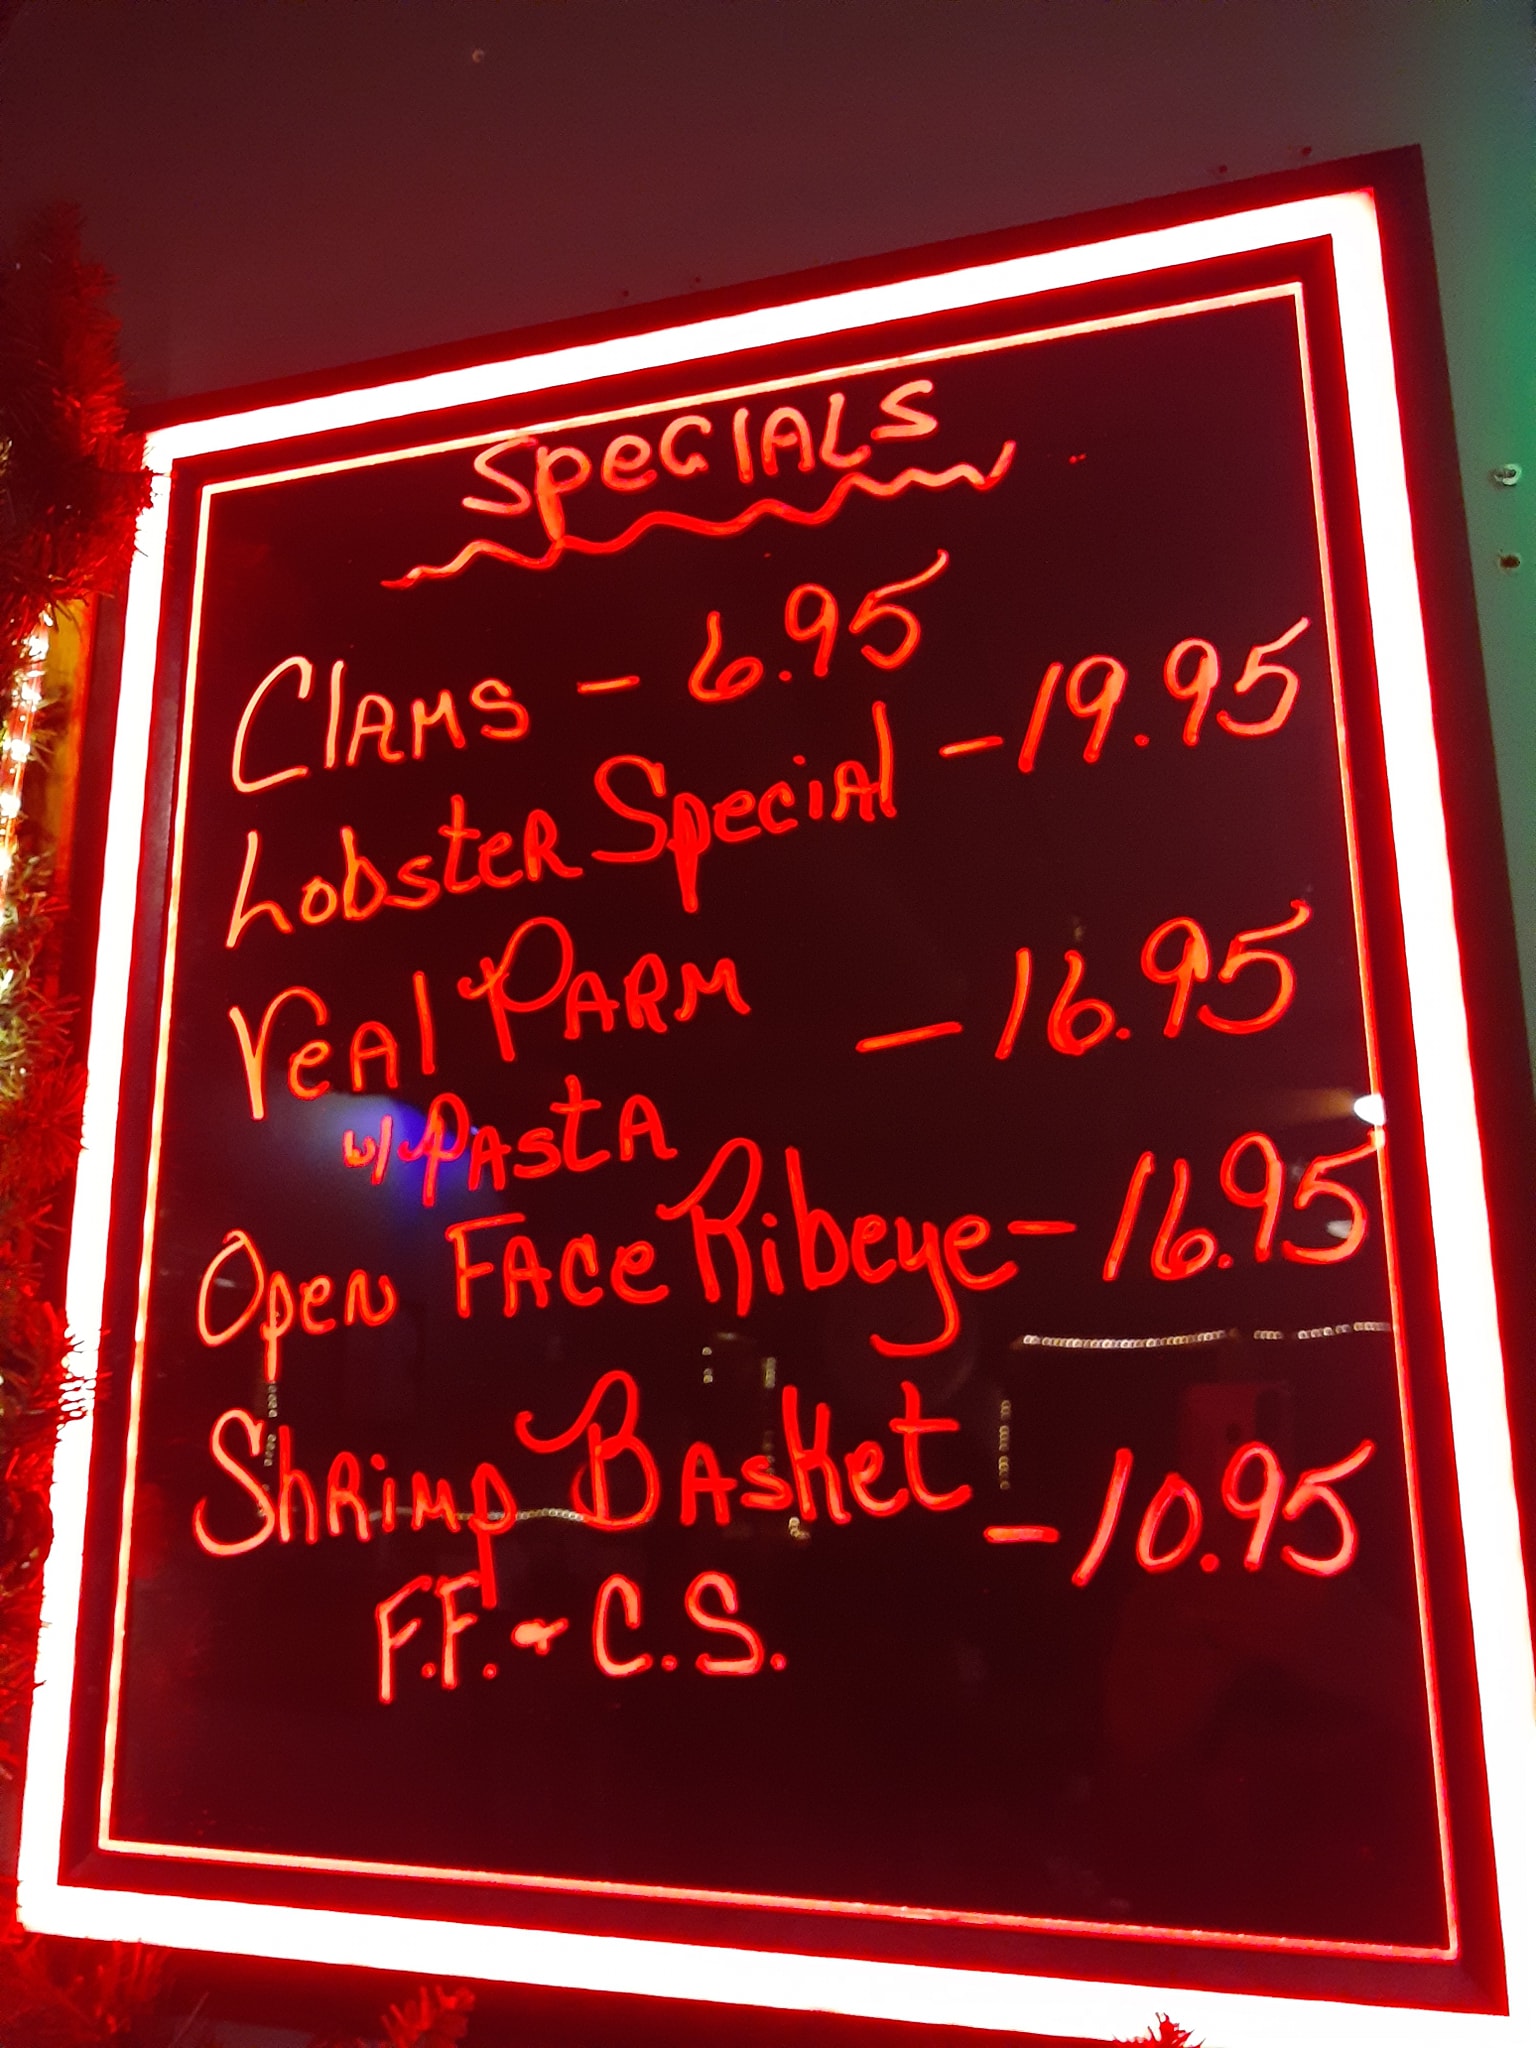 SpeCIALS
ClAMS - 6.95
LobsteR SpeciAl - 19.95
VeAl PARM - 16.95
w/ PAstA
Open FACe Ribeye - 16.95
ShRimp BAsket - 10.95
F.F. & C.S.